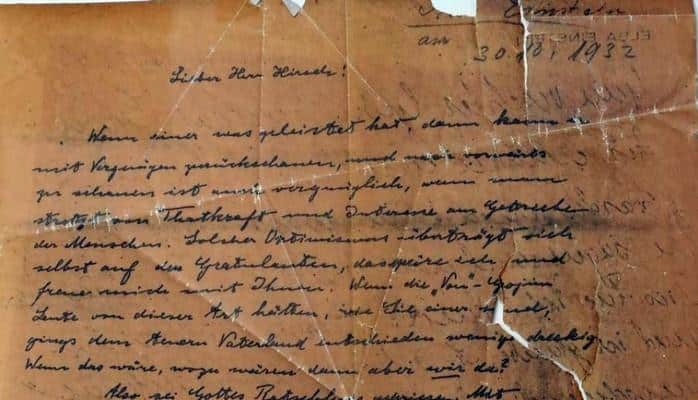 Einstein
am 30.10.1932
Lieber Herr Hirsch!
Wenn einer was geleistet hat, dann kann er
mit Vergnügen zurückschauen, und nach vorwärts
zu schauen ist auch vergnüglich, wenn man
strotzt von Thatkraft und Interesse am
der Menschen. Solcher Optimismus überträgt sich
selbst auf den Gratulanten, das spüre ich, und
freue mich mit Ihnen. Wenn die „Von"-Gojim
Leute von dieser Art hätten, wie Sie einer sind,
gings dem teuern Vaterland entschieden weniger dreckig
Wenn das wäre, wozu wären dann aber wir da?
Also sei Gottes Ratschluss gepriesen. Mit